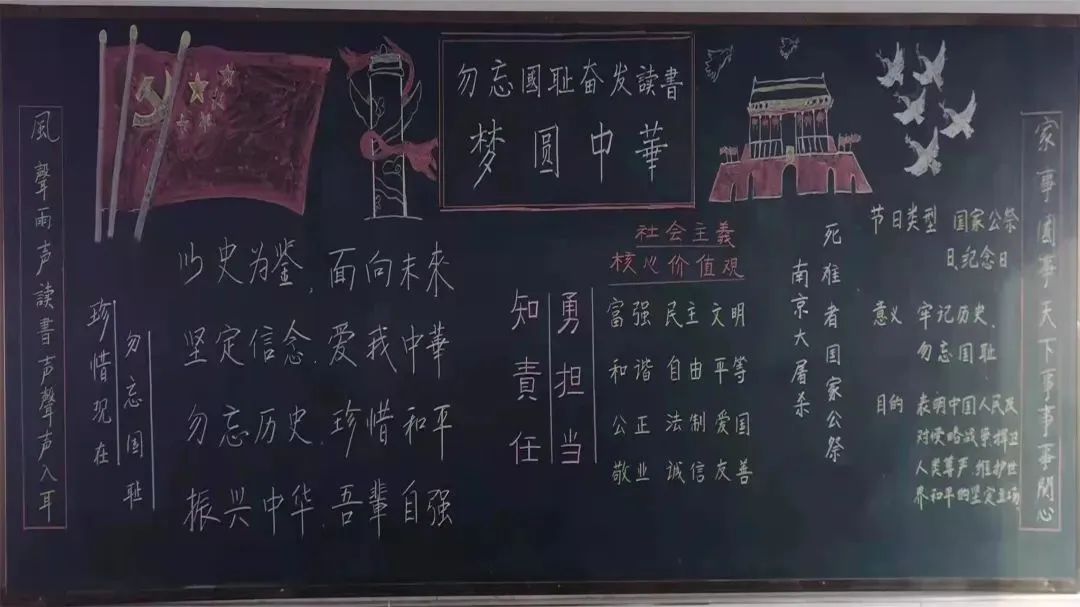 風聲雨声讀書声聲声入耳
勿忘國耻奋发讀書
梦圆中華
珍惜现在
勿忘国耻
以史为鉴,面向未來
坚定信念,爱我中華
勿忘历史,珍惜和平
振兴中华,吾輩自强
知責任
勇担当
社会主義
核心价值观
富强 民主 文明
和谐 自由 平等
公正 法制 爱国
敬业 诚信 友善
南京大屠杀
死难者国家公祭
节日类型 国家公祭
日,纪念日
意义 牢记历史,
勿忘国耻
目的 表明中国人民反
对侵略战争捍卫
人类尊严,维护世
界和平的坚定立场
家事國事天下事事事関心